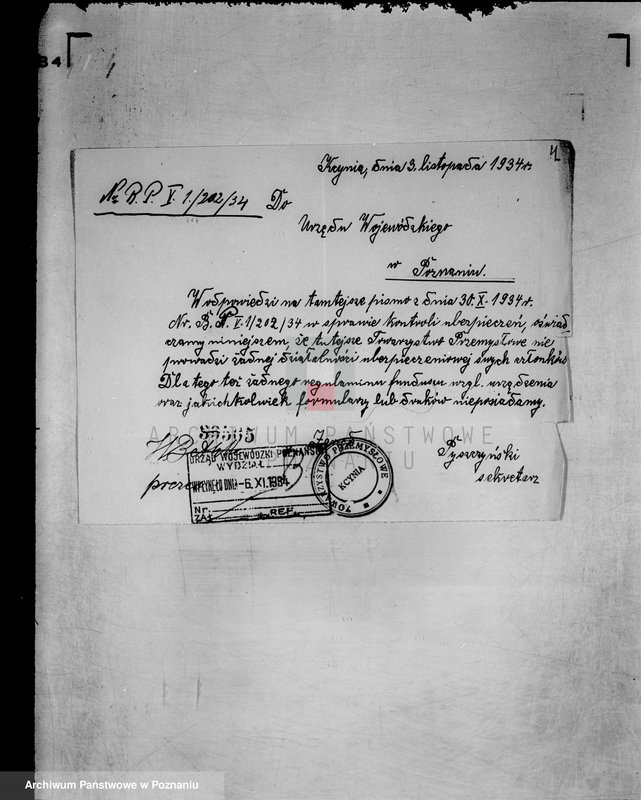 4
Kcynia, dnia 3. listopada 1934 r.
Nr. B. P. V. 1/202/34 Do
Urzędu Wojewódzkiego
w Poznaniu.
W odpowiedzi na tamtejsze pismo z dnia 30. X. 1934 r.
Nr. B. P. V. 1/202/34 w sprawie kontroli ubezpieczeń, oświad-
czamy niniejszem, że tutejsze Towarzystwo Przemysłowe nie
prowadzi żadnej działalności ubezpieczeniowej swych członków
Dlatego też żadnego regulaminu funduszu wzgl. urządzenia
oraz jakichkolwiek formularzy lub druków nieposiadamy.
ARCHIWUM PAŃSTWOWE
W POZNANIU
prezes
Pyszczyński
sekretarz
URZĄD WOJEWÓDZKI POZNAŃSKI
WYDZIAŁ
WPŁYNĘŁO DNIA -6. XI. 1934
Nr.
ZAŁ. REF.
TOWARZYSTWO PRZEMYSŁOWE
KCYNIA
Archiwum Państwowe w Poznaniu